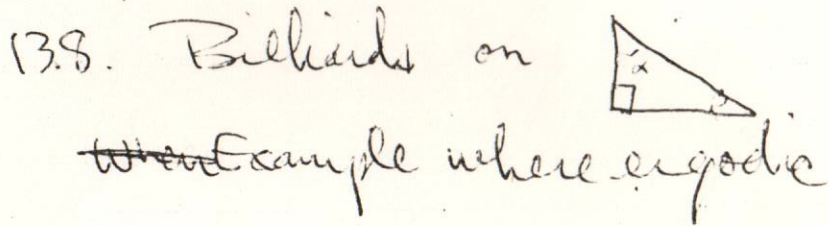 13.8. Billiards on α
Example where ergodic